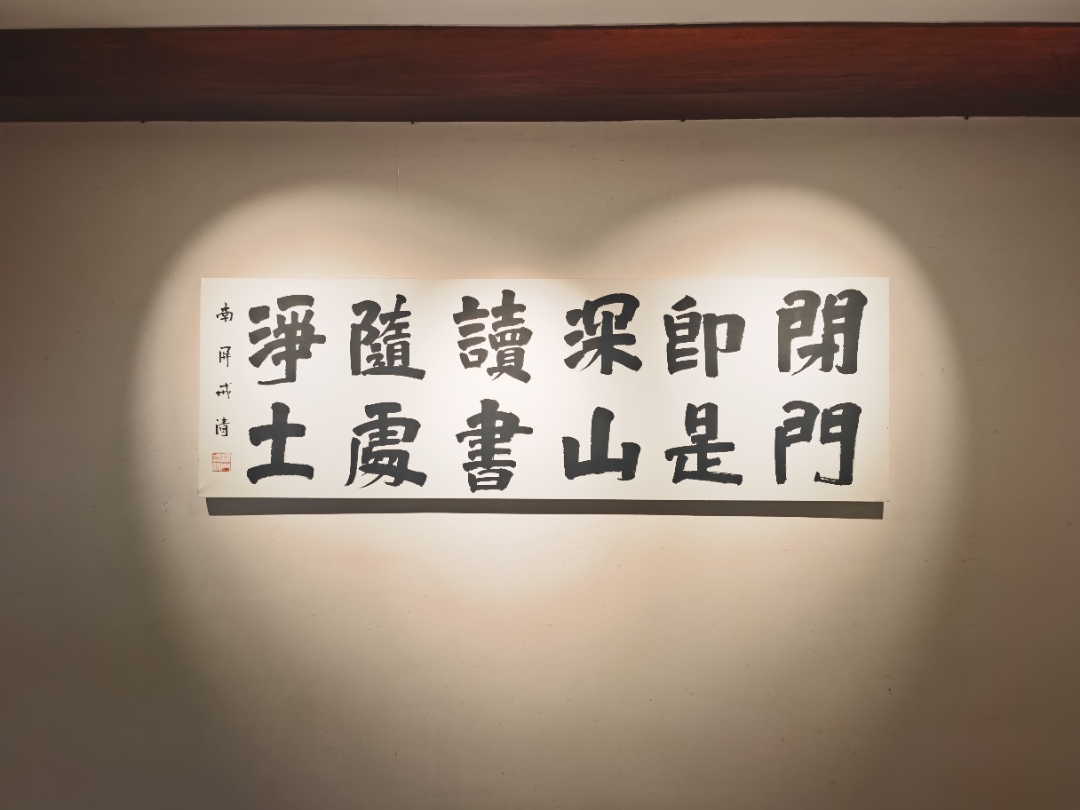 閉門
即是
深山
讀書
隨處
淨土
南屏戒清